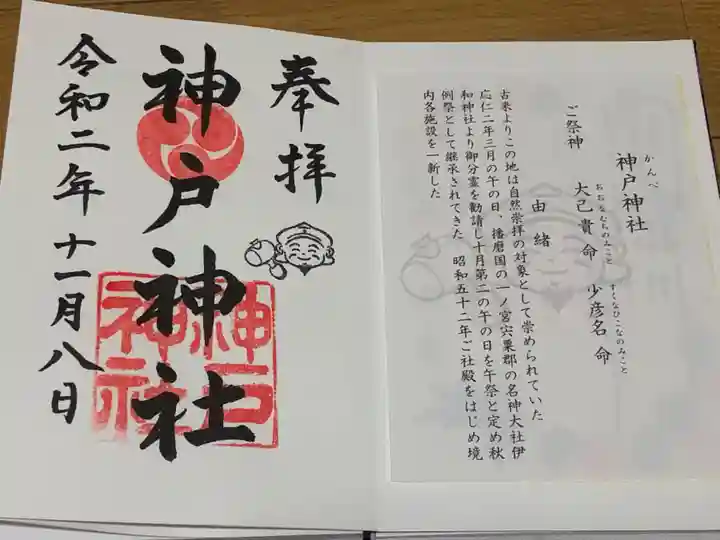 奉拝
神戸神社
神戸神社
令和二年十一月八日
かんべ
神戸神社
ご祭神
おおなむちのみこと
大己貴命
すくなひこなのみこと
少彦名命
由緒
古来よりこの地は自然崇拝の対象として崇められていた
応仁二年三月の午の日、播磨国の一ノ宮宍粟郡の名神大社伊
和神社より御分霊を勧請し十月第二の午の日を午祭と定め秋
例祭として継承されてきた 昭和五十二年ご社殿をはじめ境
内各施設を一新した